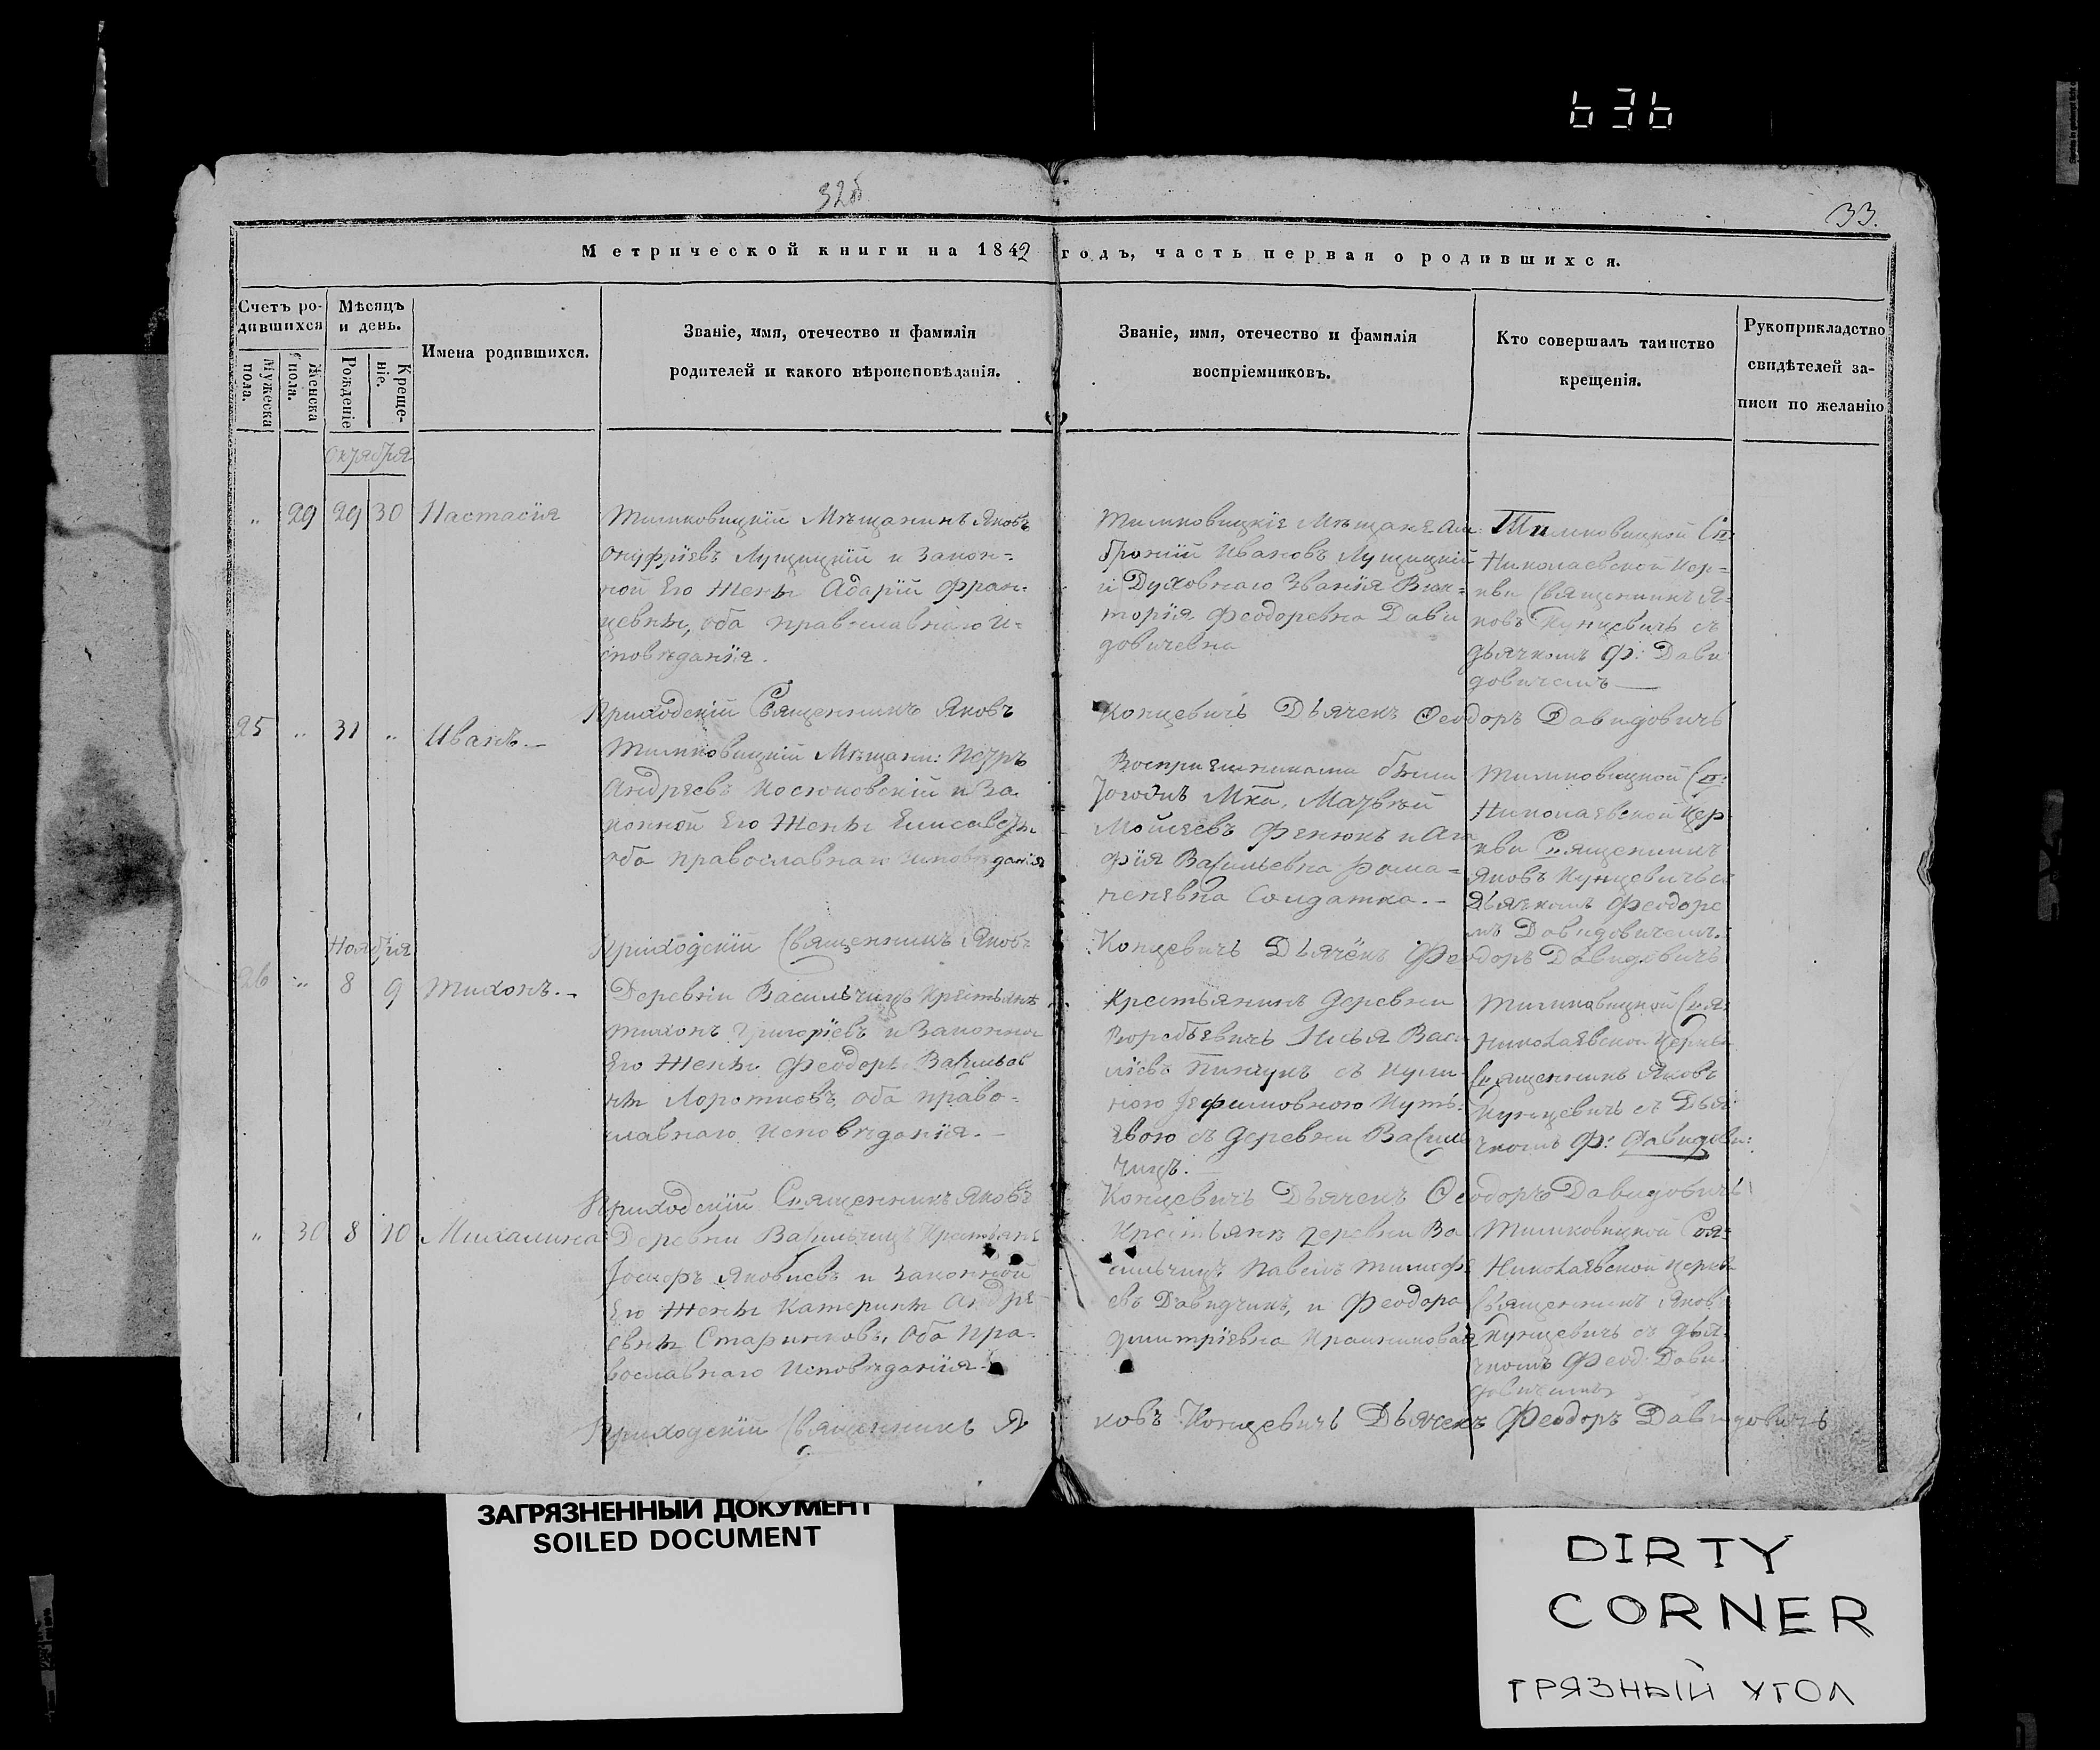 636
32б
33.
Метрической книги на 1842 годъ, часть первая о родившихся.
Счетъ ро-
дившихся
Мужеска пола.
Женска пола.
Мѣсяцъ
и день.
Рожденіе
Креще-
ніе.
Имена родившихся.
Званіе, имя, отечество и фамилія
родителей и какого вѣроисповѣданія.
Званіе, имя, отечество и фамилія
воспріемниковъ.
Кто совершалъ таинство
крещенія.
Рукоприкладство
свидѣтелей за-
писи по желанію
Октября
" 29 29 30 Настасія
Тимковицкій Мѣщанинъ Яковъ
Онуфріевъ Лущицкій и Закон=
ной Его Жены Адаріи Фран-
цевны, оба православнаго и=
сповѣданія.
Тимковицкіе Мѣщане Ам
броній Ивановъ Лущицкій
и Духовнаго Званія Вик=
торія Феодоровна Дави
довичевна
Тимковицкой Св:
Николаевской Цер=
кви Священникъ Я=
ковъ Кунцевичъ съ
дьячкомъ Ф: Дави
довичемъ
Приходскій Священникъ Яковъ Концевичъ Дьячекъ Феодоръ Давидовичъ
25 " 31 " Иванъ.-
Тимковицкій Мѣщани: Петръ
Андреевъ Косюковскій и За
конной Его Жены Елисаветы
оба православнаго исповѣданія
Воспріемниками были
Мѣщ. Матвѣй
Моисеевъ Фенюкъ и Ага
фія Васильевна Рома=
неневна Солдатка.-
Тимковицкой Св:
Николаевской Цер
кви Священникъ
Яковъ Кунцевичъ съ
Дьячкомъ Феодоро
мъ Давидовичемъ.
Приходскій Священникъ Яковъ Концевичъ Дьячекъ Феодоръ Давидовичъ
Ноября
26 " 8 9 Тихонъ.-
Деревни Васильчицъ Крестьянъ
Тихонъ Григоріевъ и Законной
Его Жены Феодоры Васильев
ны Коротковъ, оба право-
славнаго исповѣданія.-
Крестьянинъ деревни
Воробьевичъ Илья Васи
ліевъ Пинчукъ съ Кули-
ною Іефимовною Куть:
евою съ деревни Василь
чицъ.
Тимковицкой Свя:
Николаевской Церкви
Священникъ Яковъ
Кунцевичъ съ Дья
чкомъ Ф: Давидови:
Приходскій Священникъ Яковъ Концевичъ Дьячекъ Феодоръ Давидовичъ
" 30 8 10 Михалина
Деревни Васильчицъ Крестьянъ
Яковлевъ и Законной
Его Жены Катерины Андре
евны Стариковъ, Оба Пра-
вославнаго Исповѣданія.
Крестьянъ деревни Ва
сильчицъ Павелъ Тимофе
евъ Давидчикъ, и Феодора
Дмитріевна
Тимковицкой Свя:
Николаевской церкви
Священникъ Яковъ
Кунцевичъ съ дья-
чкомъ Феод: Дави-
довичемъ
Приходскій Священникъ Яковъ Концевичъ Дьячекъ Феодоръ Давидовичъ
ЗАГРЯЗНЕННЫЙ ДОКУМЕНТ
SOILED DOCUMENT
DIRTY
CORNER
ГРЯЗНЫЙ УГОЛ